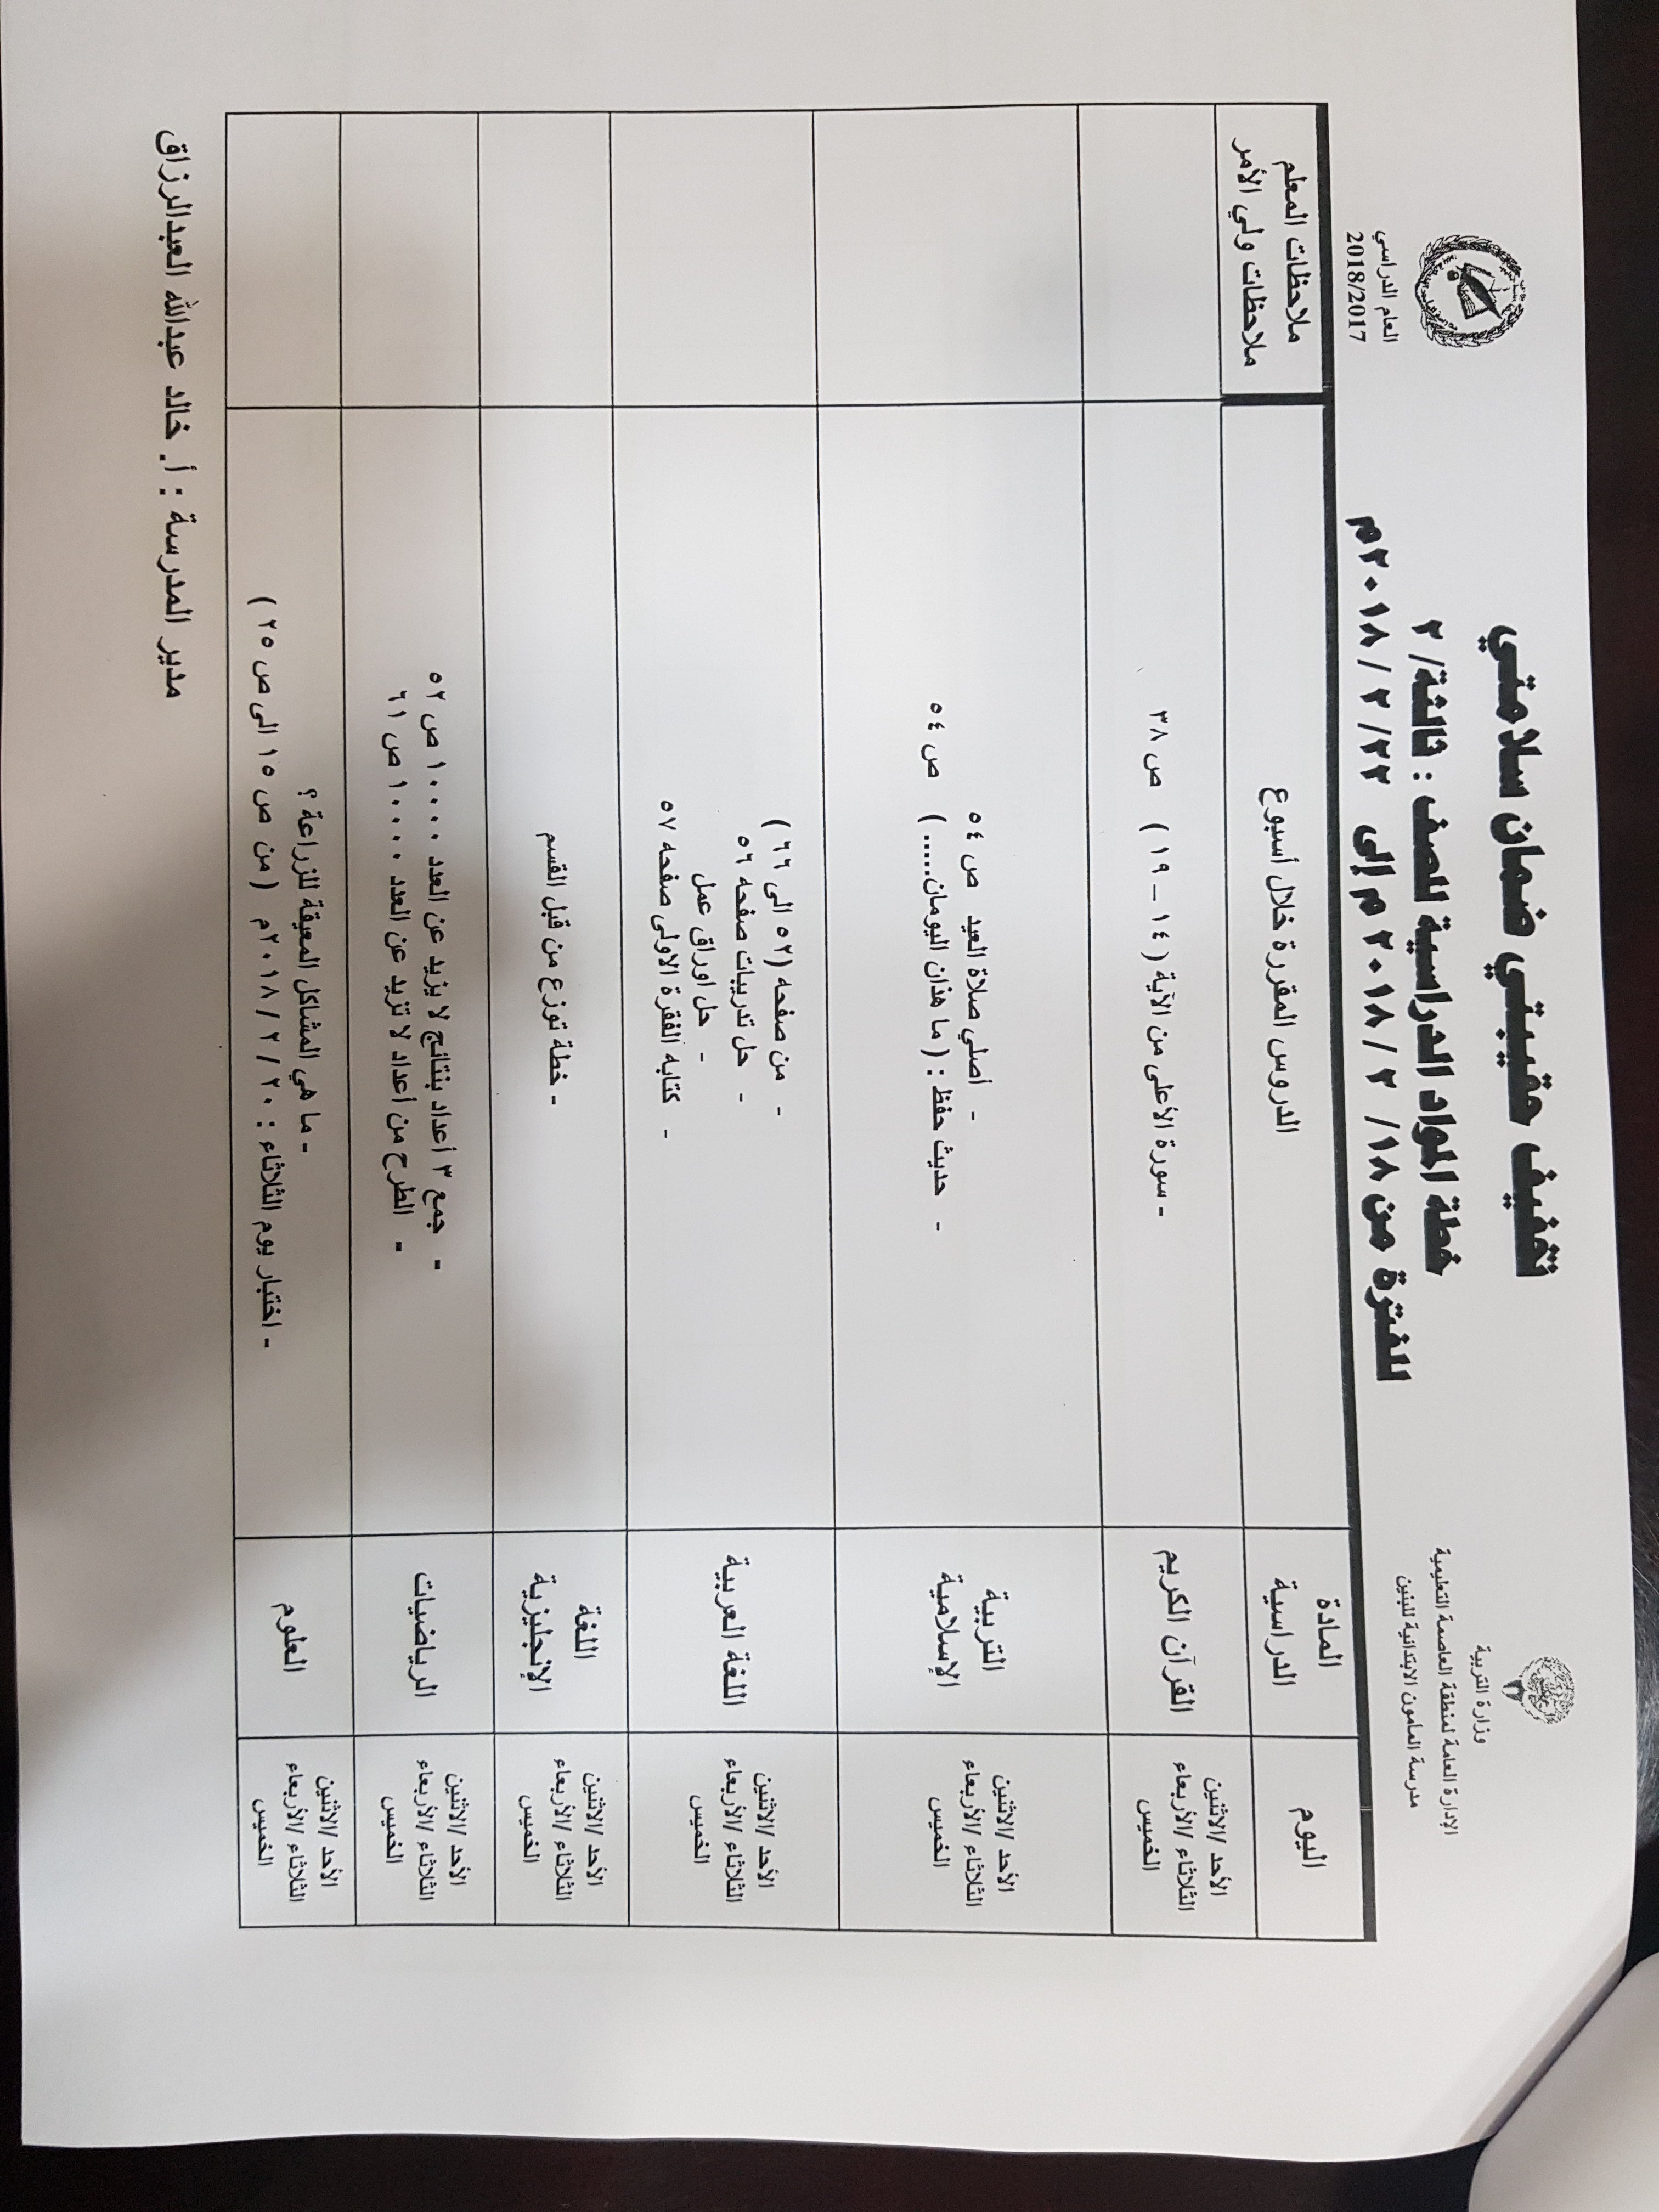 وزارة التربية
الإدارة العامة لمنطقة العاصمة التعليمية
مدرسة المامون الابتدائية للبنين
تخفيف حقيبتي ضمان سلامتي
خطة المواد الدراسية للصف : ثالثة/ ٢
للفترة من ١٨/ ٢ / ٢٠١٨ م إلى ٢٢/ ٢ / ٢٠١٨م
العام الدراسي
2018/2017
اليوم
المادة
الدراسية
الدروس المقررة خلال أسبوع
ملاحظات المعلم
ملاحظات ولي الأمر
الأحد /الاثنين
الثلاثاء /الأربعاء
الخميس
القرآن الكريم
- سورة الأعلى من الآية ( ١٤ – ١٩ ) ص ٣٨
الأحد /الاثنين
الثلاثاء /الأربعاء
الخميس
التربية
الإسلامية
- أصلي صلاة العيد ص ٥٤
- حديث حفظ : ( ما هذان اليومان..... ) ص ٥٤
الأحد /الاثنين
الثلاثاء /الأربعاء
الخميس
اللغة العربية
- من صفحه (٥٢ الى ٦٦ )
- حل تدريبات صفحه ٥٦
- حل اوراق عمل
- كتابه الفقرة الاولى صفحه ٥٧
الأحد /الاثنين
الثلاثاء /الأربعاء
الخميس
اللغة
الإنجليزية
- خطة توزع من قبل القسم
الأحد /الاثنين
الثلاثاء /الأربعاء
الخميس
الرياضيات
- جمع ٣ أعداد بنتائج لا يزيد عن العدد ١٠٠٠٠ ص ٥٢
- الطرح من أعداد لا تزيد عن العدد ١٠٠٠٠ ص ٦١
الأحد /الاثنين
الثلاثاء /الأربعاء
الخميس
العلوم
- ما هي المشاكل المعيقة للزراعة ؟
- اختبار يوم الثلاثاء : ٢٠ / ٢ / ٢٠١٨م ( من ص ١٥ الى ص ٢٥ )
مدير المدرسة : أ. خالد عبدالله العبدالرزاق